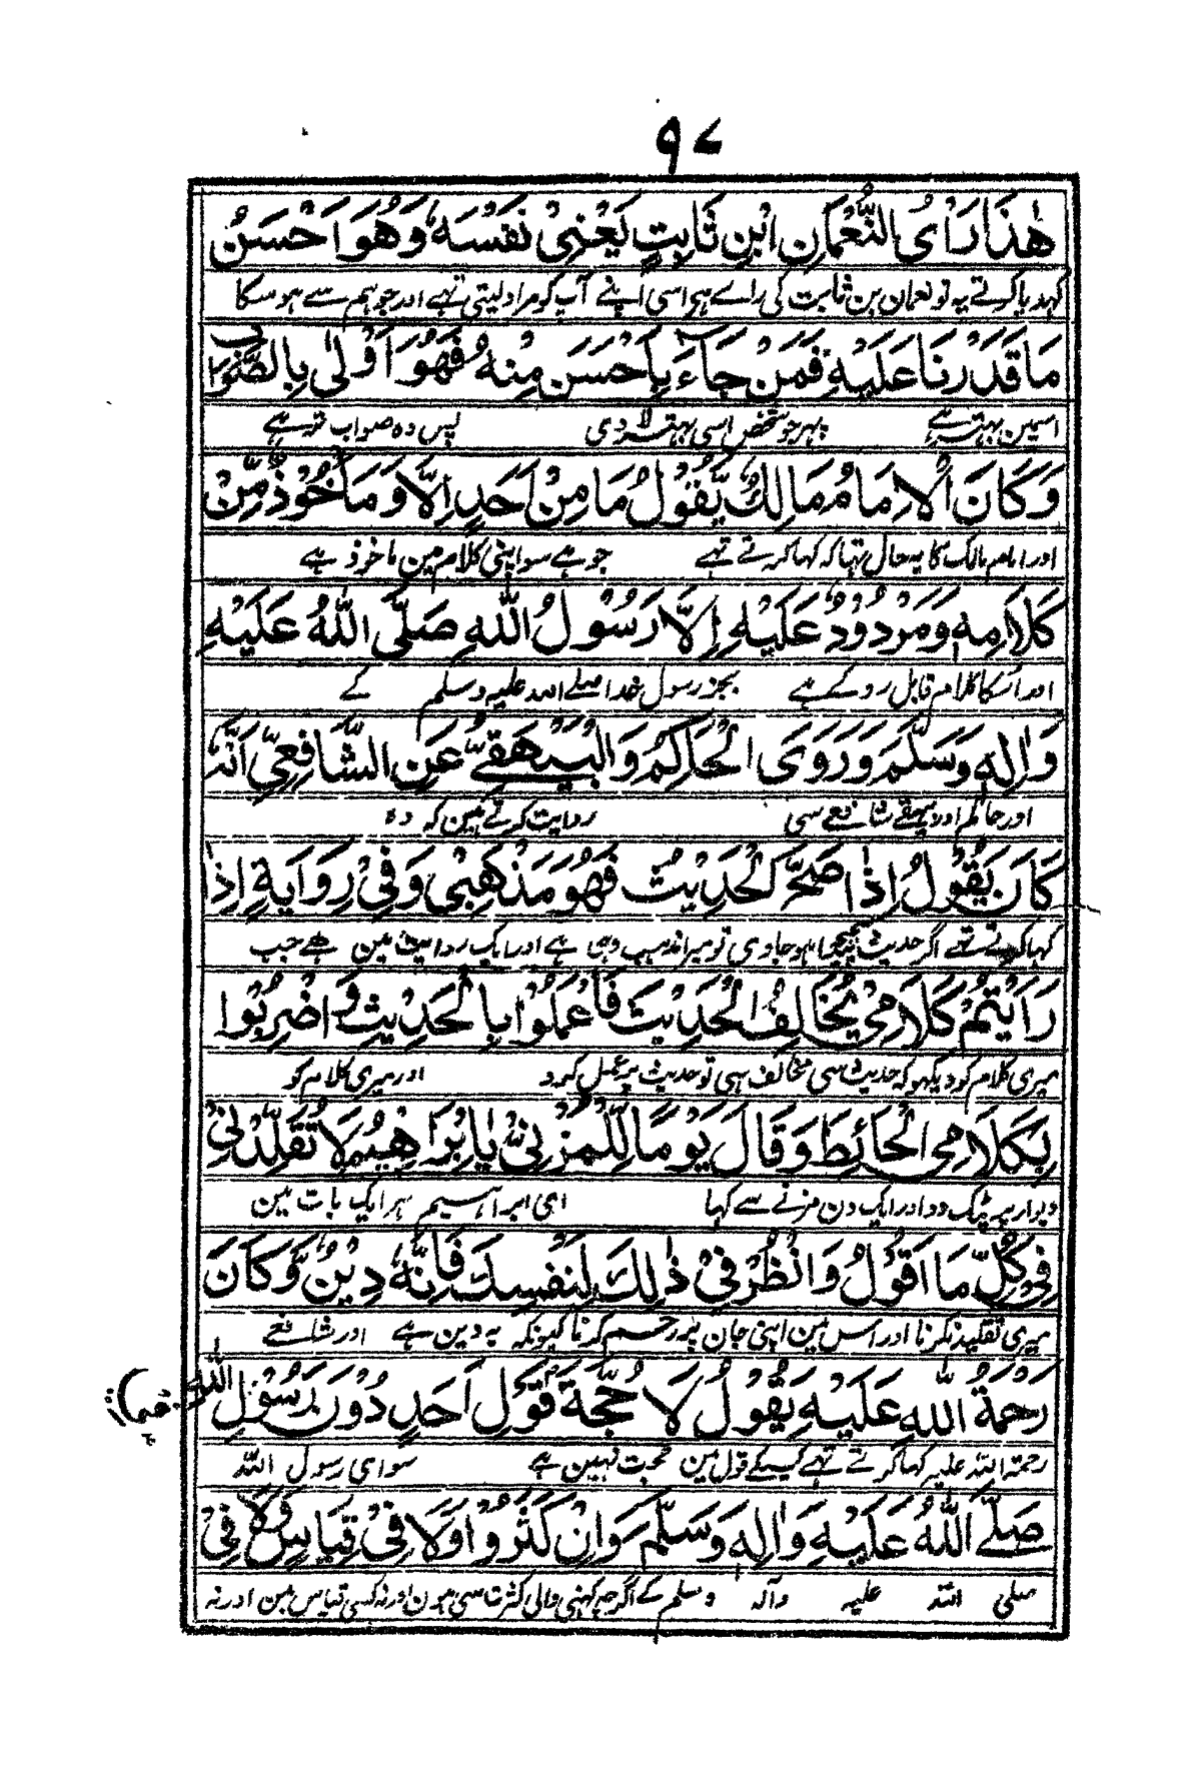 ٩٧
هٰذَا رَاْىُ النُّعْمَانِ ابْنِ ثَابِتٍ يَعْنِىْ نَفْسَهٗ وَهُوَ اَحْسَنُ
کہدیا کرتے یہ تو نعمان بن ثابت کی راے ہے اسی اپنے آپ کو مراد لیتی تہے اور جو ہم سے ہو سکا
مَا قَدَرْنَا عَلَيْهِ فَمَنْ جَآءَ بِاَحْسَنَ مِنْهُ فَهُوَ اَوْلٰى بِالصَّوَابِ
اسمین بہتر ہے پہر جو شخص اسی بہتر لادی پس وہ صواب تر ہے
وَكَانَ الْاِمَامُ مَالِكٌ يَّقُوْلُ مَا مِنْ اَحَدٍ اِلَّا وَمَاْخُوْذٌ مِّنْ
اور امام مالک کا یہ حال تہا کہ کہا کرتے تہے جو ہے سو اپنی کلام مین ماخوذ ہے
كَلَامِهٖ وَمَرْدُوْدٌ عَلَيْهِ اِلَّا رَسُوْلُ اللّٰهِ صَلَّى اللّٰهُ عَلَيْهِ
اور اُسکا کلام قابل رو کے ہے بجز رسول خدا صلے اللہ علیہ وسلم کے
وَاٰلِهٖ وَسَلَّمَ وَرَوَى الْحَاكِمُ وَالْبَيْهَقِىُّ عَنِ الشَّافِعِىِّ اَنَّهٗ
اور حاکم اور بیہقے شافعے سی روایت کرتے ہین کہ وہ
كَانَ يَقُوْلُ اِذَا صَحَّ الْحَدِيْثُ فَهُوَ مَذْهَبِىْ وَفِىْ رِوَايَةٍ اِذَا
کہا کرتے تہے اگر حدیث صحیح ہو جاوی تو میرا مذہب وہی ہے اور ایک روایت مین ہے جب
رَاَيْتُمْ كَلَامِىْ يُخَالِفُ الْحَدِيْثَ فَاعْمَلُوْا بِالْحَدِيْثِ وَاضْرِبُوْا
میری کلام کو دیکہو کہ حدیث سی مخالف ہی تو حدیث پر عمل کرو اور میری کلام کو
بِكَلَامِى الْحَائِطَ وَقَالَ يَوْمًا لِّلْمُزَنِىِّ يَا اِبْرَاهِيْمُ لَا تُقَلِّدْنِىْ
دیوار پر پٹک دو اور ایک دن مزنے سے کہا ای ابراہیم ہر ایک بات مین
فِىْ كُلِّ مَا اَقُوْلُ وَانْظُرْ فِىْ ذٰلِكَ لِنَفْسِكَ فَاِنَّهٗ دِيْنٌ وَّكَانَ
میری تقلید نکرنا اور اس مین اپنی جان پر رحم کرنا کیونکہ یہ دین ہے اور شافعے
رَحْمَةُ اللّٰهِ عَلَيْهِ يَقُوْلُ لَا حُجَّةَ فِىْ قَوْلِ اَحَدٍ دُوْنَ رَسُوْلِ اللّٰهِ
رحمۃ اللہ علیہ کہا کرتے تہے کسیکے قول مین حجت نہین ہے سوای رسول اللہ
صَلَّى اللّٰهُ عَلَيْهِ وَاٰلِهٖ وَسَلَّمَ وَاِنْ كَثُرُوْا وَلَا فِىْ قِيَاسٍ وَّلَا فِىْ
صلی اللہ علیہ وآلہ وسلم کے اگرچہ کہنی والی کثرت سی ہون اور نہ کسی قیاس مین اور نہ